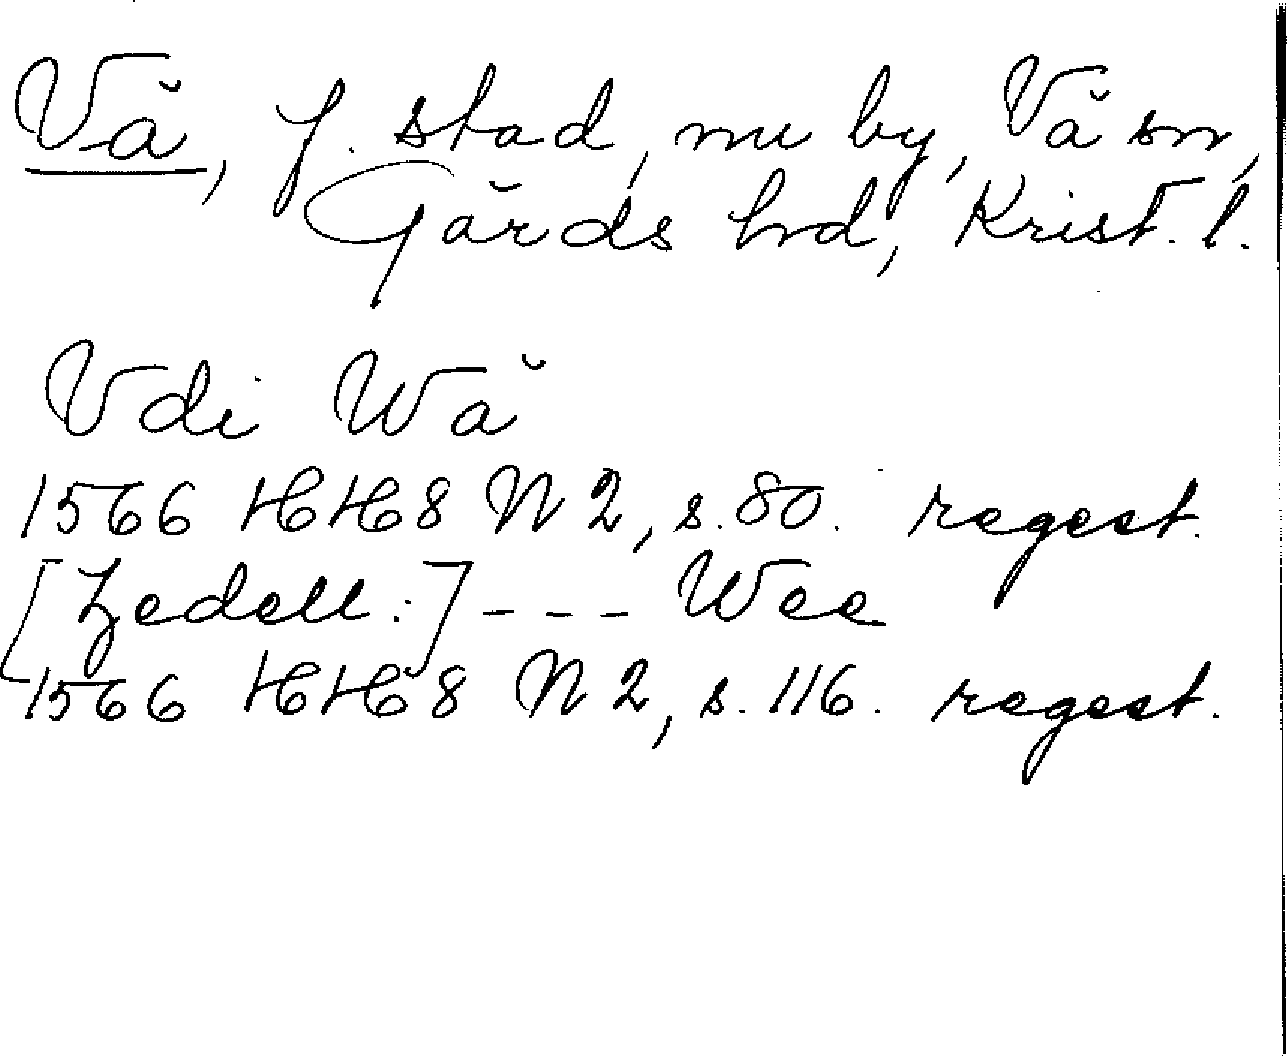 Vä, f. stad, nu by, Vä sn,
Gärds hrd, Krist. l.
Vdi Wå
1566 HH 8 N 2, s. 80. regest.
[Zedell:] --- Wee
1566 HH 8 N 2, s. 116. regest.